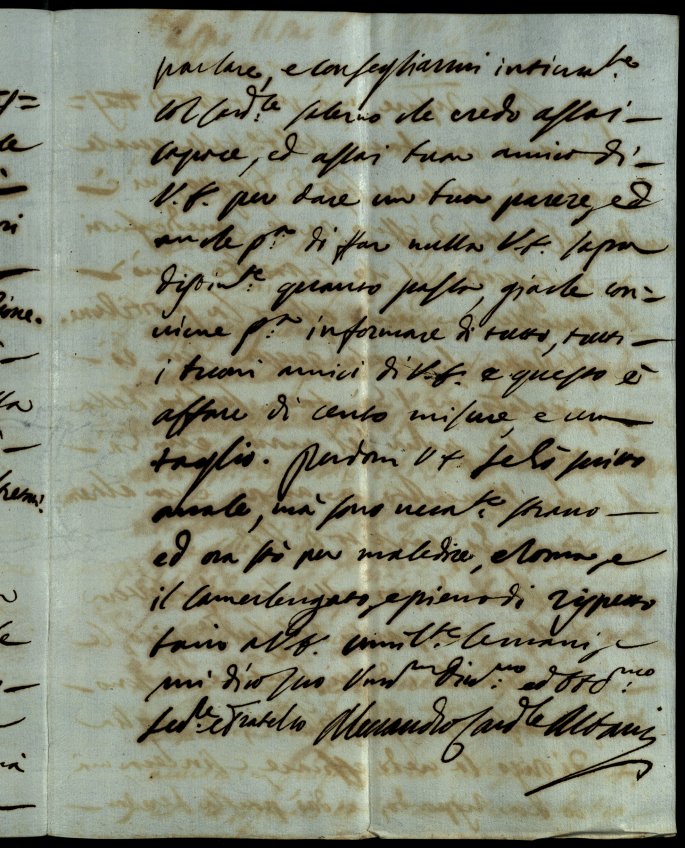 parlare, e consegliarmi intimam.te
col Card.le Salerno che credo assai
capace, ed assai buon amico di
V.E. per dare un buon parere, ed
anche p.ma di far nulla V.E. sapra
distint.e quanto passa, giache con=
viene p.ma informare di tutto, tutti
i buoni amici di V.E. e questo è
affare di cento misure, e un
taglio. Perdoni V.E. se hò scritto
male, mà sono strano
ed ora stò per maledire, e Roma, e
il Camerlengato, e pieno di rispetto
bacio a V.E. umil.te le mani, e
mi dico suo ed
Alessandro Card.le Albani